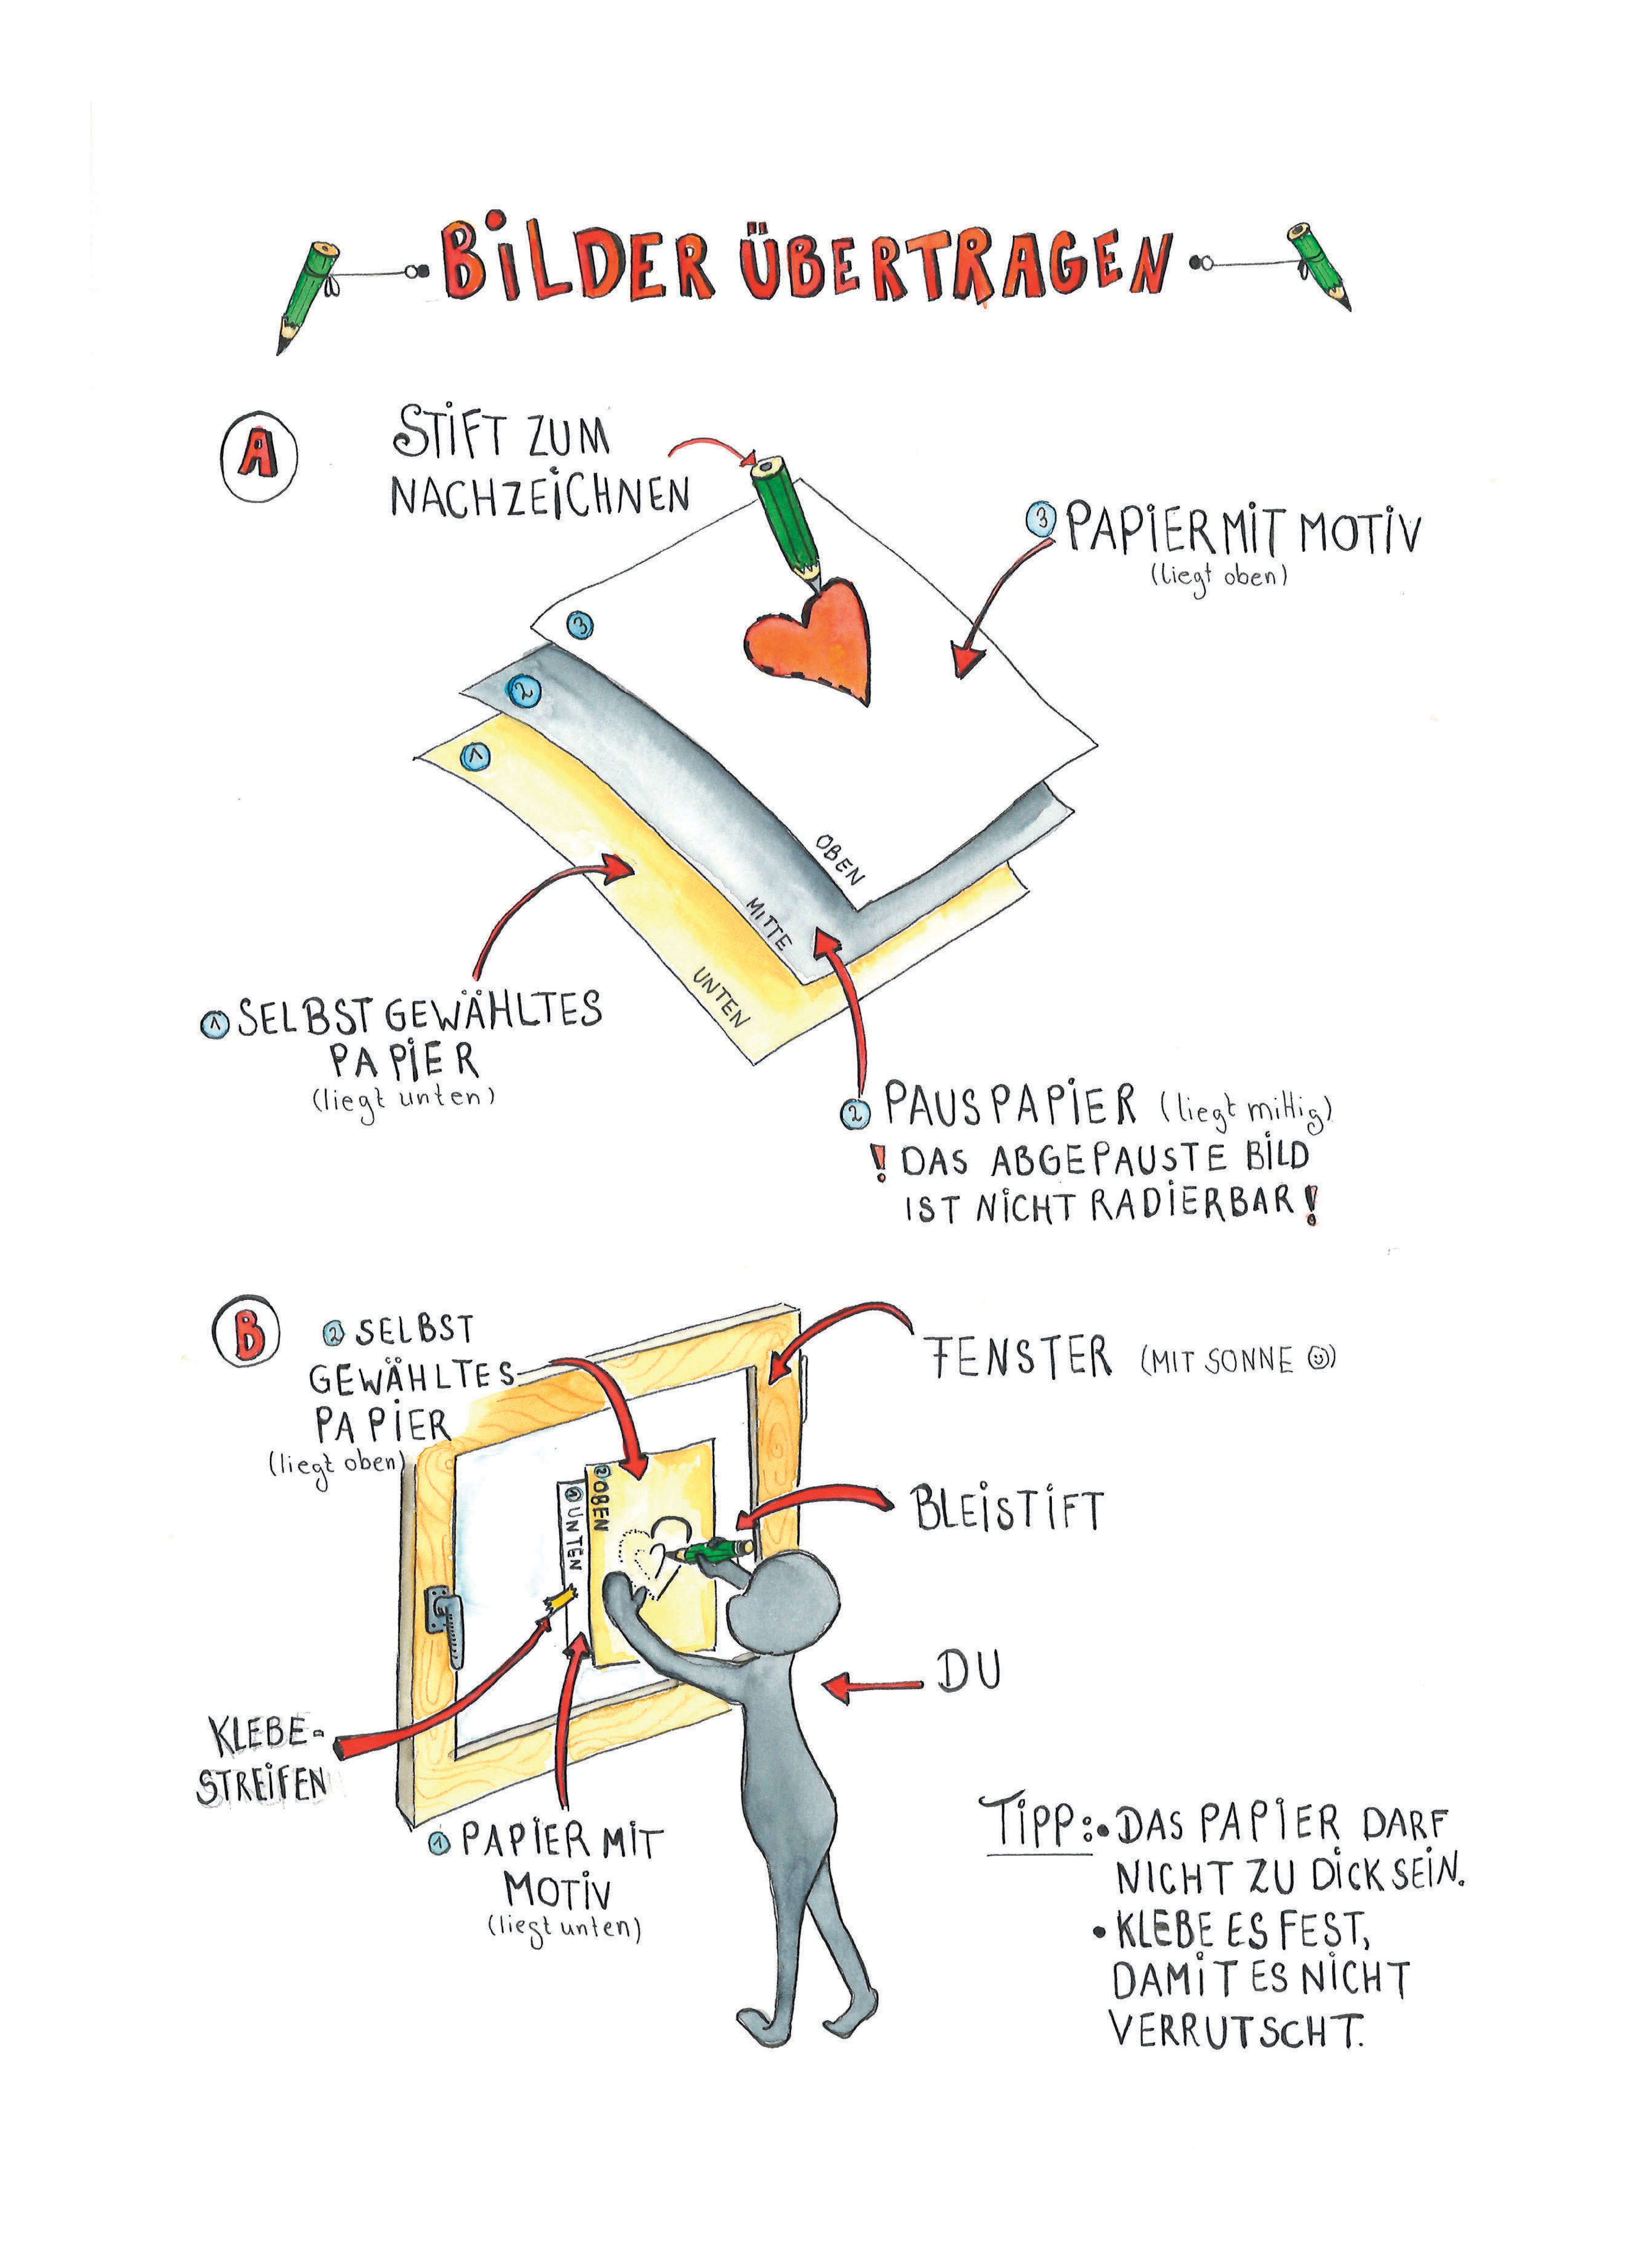 BiLDER ÜBERTRAGEN
A
STiFT ZUM
NACHZEiCHNEN
3 PAPiER MiT MOTiV
(liegt oben)
3
2
1
OBEN
MITTE
UNTEN
1 SELBST GEWÄHLTES
PAPiER
(liegt unten)
2 PAUSPAPiER (liegt mittig)
! DAS ABGEPAUSTE BiLD
IST NiCHT RADiERBAR!
B
2 SELBST
GEWÄHLTES
PAPiER
(liegt oben)
FENSTER (MIT SONNE ☺)
2 OBEN
1 UNTEN
BLEiSTiFT
DU
KLEBE-
STREiFEN
1 PAPiER MiT
MOTiV
(liegt unten)
TiPP: • DAS PAPiER DARF
NICHT ZU DiCK SEiN.
• KLEBE ES FEST,
DAMiT ES NiCHT
VERRUTSCHT.